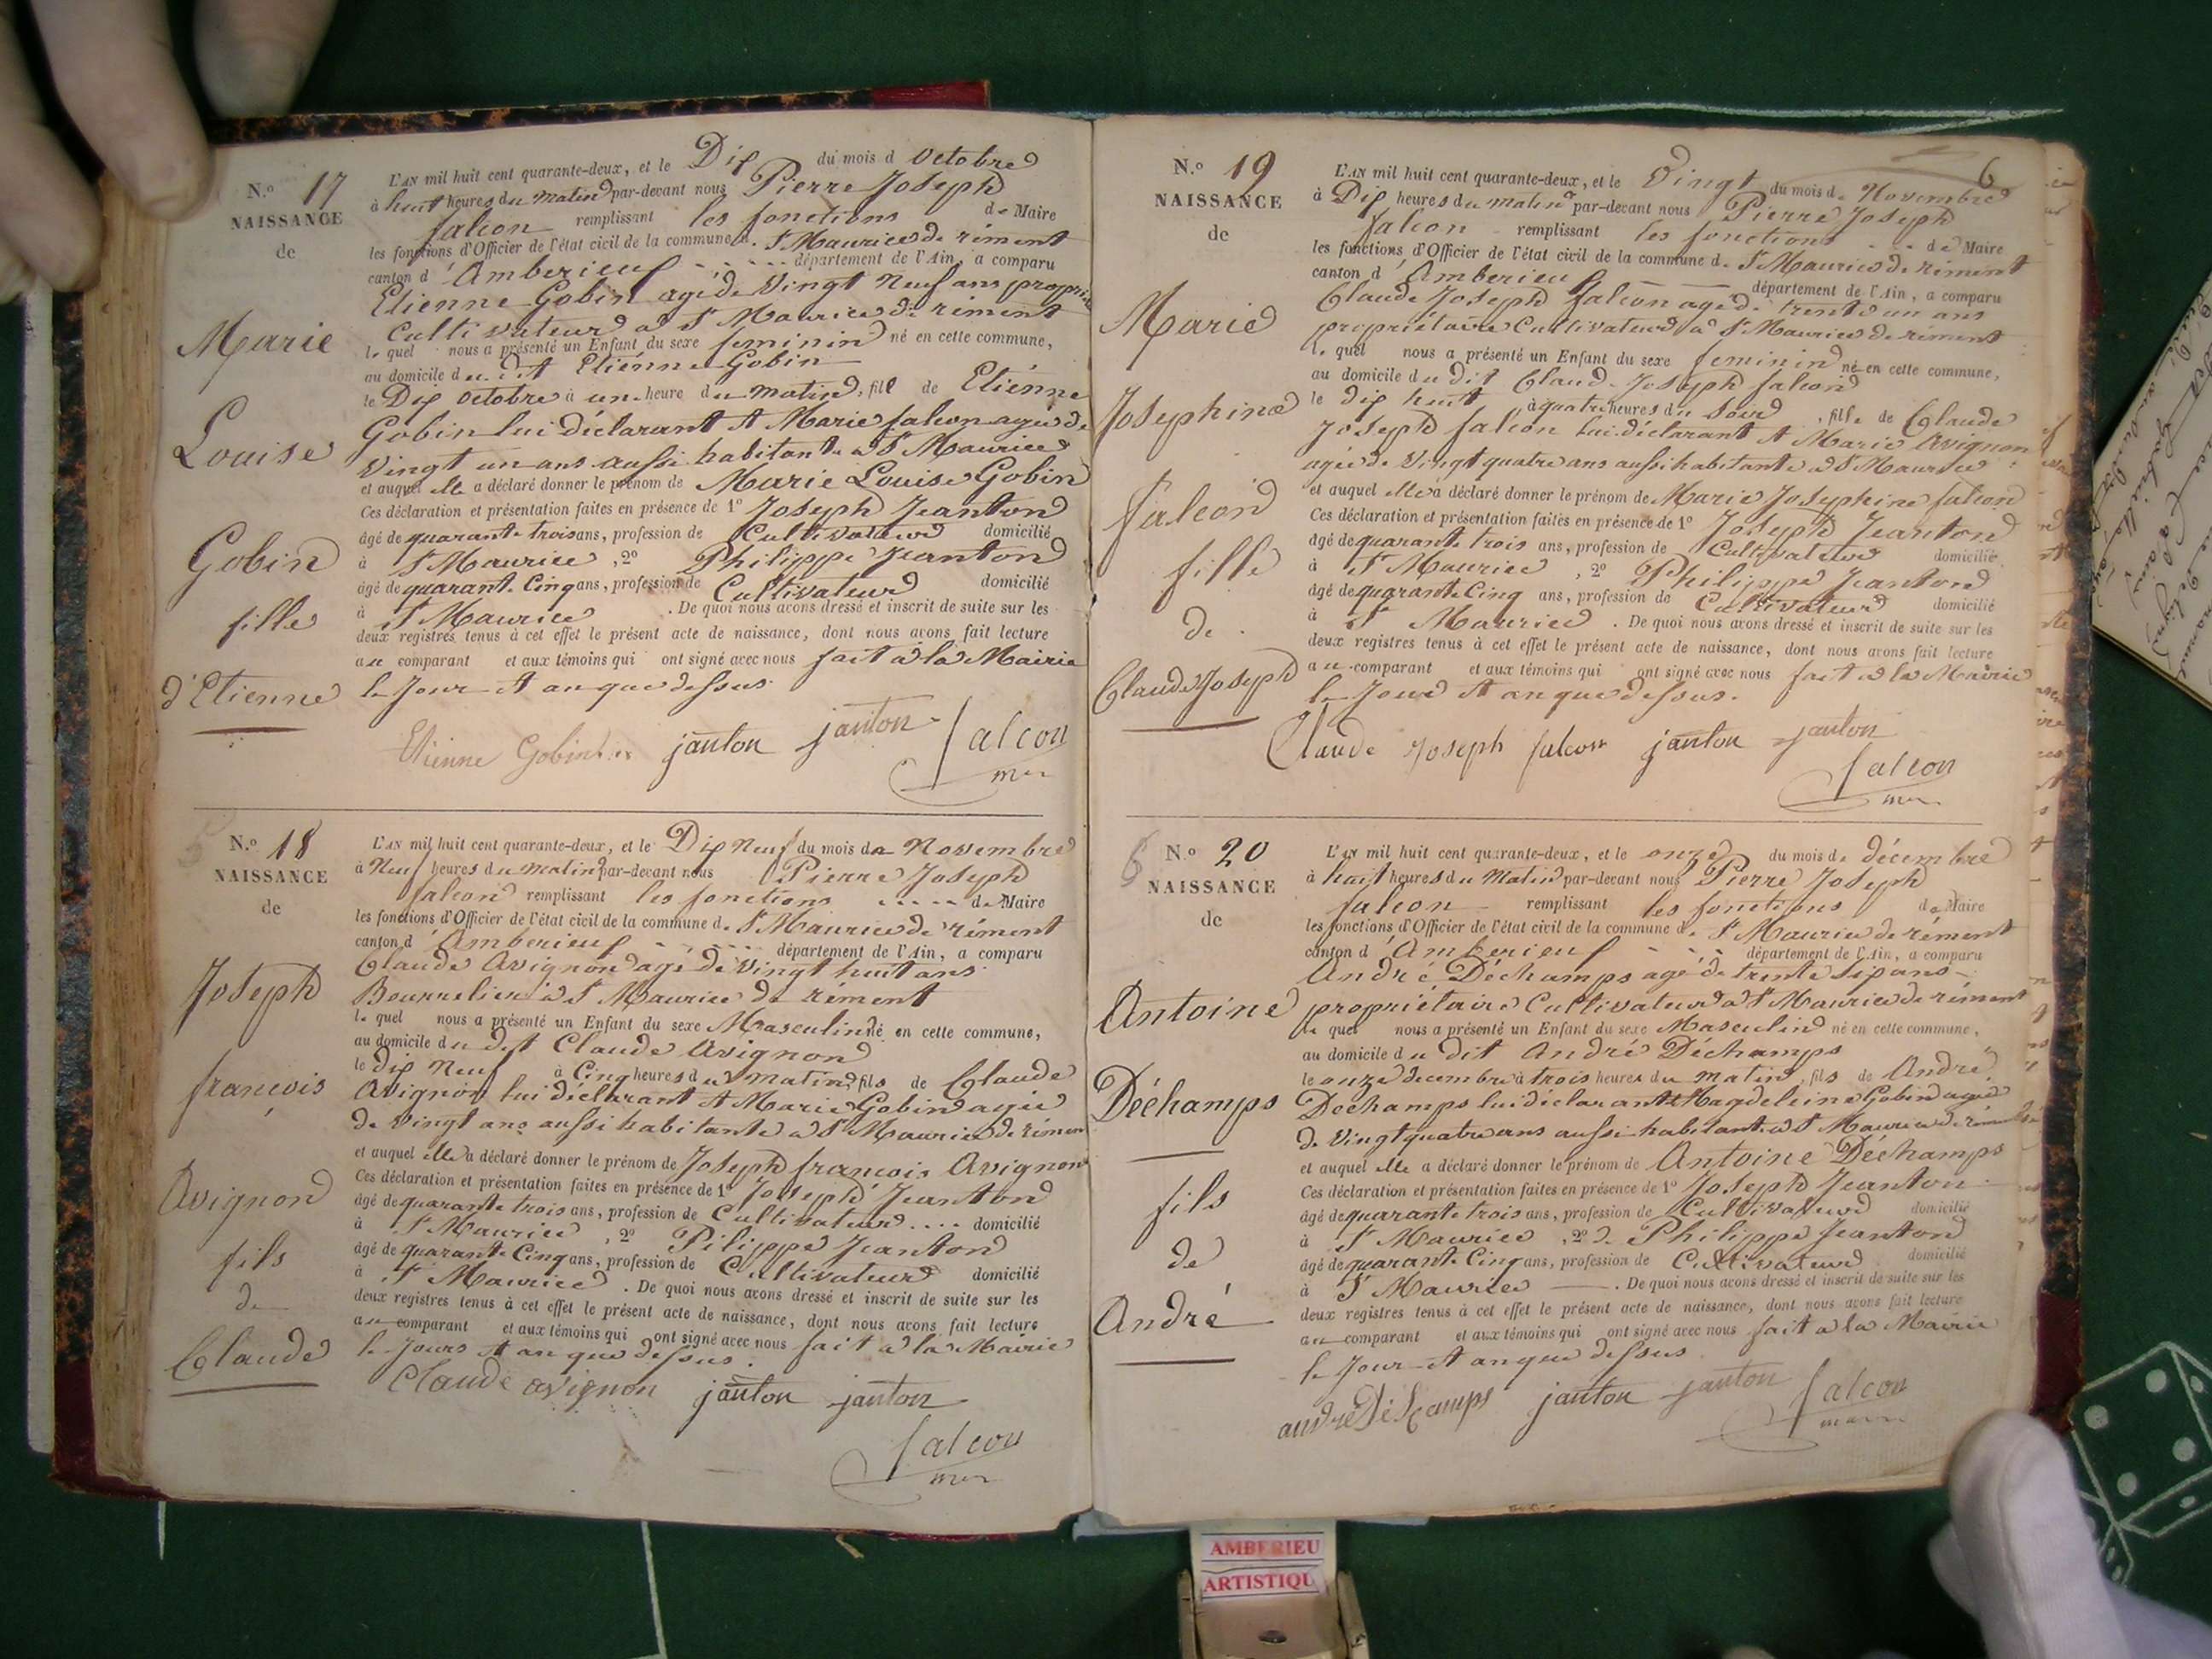 N.o 17
NAISSANCE
de
Marie
Louise
Gobin
fille
d'Etienne
L'AN mil huit cent quarante-deux, et le Dix du mois d octobre
à huit heures du matin par-devant nous Pierre Joseph
falcon remplissant les fonctions de Maire
les fonctions d'Officier de l'état civil de la commune d. St Maurice de rément
canton d'Amberieux département de l'Ain, a comparu
Etienne Gobin agé de Vingt Neuf ans
Cultivateur a St Maurice de rément
le quel nous a présenté un Enfant du sexe feminin né en cette commune,
au domicile du dit Etienne Gobin
le Dix octobre à une heure du matin, fille de Etienne
Gobin lui déclarant et Marie falcon agée de
Vingt un ans aussi habitante a St Maurice
et auquel elle a déclaré donner le prénom de Marie Louise Gobin
Ces déclaration et présentation faites en présence de 1o Joseph Jeanton
âgé de quarante trois ans, profession de Cultivateur domicilié
à St Maurice, 2o Philippe Jeanton
âgé de quarante Cinq ans, profession de Cultivateur domicilié
à St Maurice. De quoi nous avons dressé et inscrit de suite sur les
deux registres tenus à cet effet le présent acte de naissance, dont nous avons fait lecture
au comparant et aux témoins qui ont signé avec nous fait a la Mairie
le Jour et an que dessus.
Etienne Gobin janton janton falcon
N.o 18
NAISSANCE
de
Joseph
françois
Avignon
fils
de
Claude
L'AN mil huit cent quarante-deux, et le Dix Neuf du mois de Novembre
à Neuf heures du matin par-devant nous Pierre Joseph
falcon remplissant les fonctions de Maire
les fonctions d'Officier de l'état civil de la commune d. St Maurice de rément
canton d'Amberieux département de l'Ain, a comparu
Claude Avignon agé de vingt huit ans
Bourrelier a St Maurice de rément
le quel nous a présenté un Enfant du sexe Masculin né en cette commune,
au domicile du dit Claude Avignon
le dix Neuf à Cinq heures du matin, fils de Claude
Avignon lui déclarant et Marie Gobin agée
de Vingt ans aussi habitante a St Maurice de rément
et auquel elle a déclaré donner le prénom de Joseph françois Avignon
Ces déclaration et présentation faites en présence de 1o Joseph Jeanton
âgé de quarante trois ans, profession de Cultivateur domicilié
à St Maurice, 2o Pilippe Jeanton
âgé de quarante Cinq ans, profession de Cultivateur domicilié
à St Maurice. De quoi nous avons dressé et inscrit de suite sur les
deux registres tenus à cet effet le présent acte de naissance, dont nous avons fait lecture
au comparant et aux témoins qui ont signé avec nous fait a la Mairie
le Jours et an que dessus.
Claude avignon janton janton
falcon
6
N.o 19
NAISSANCE
de
Marie
Josephine
falcon
fille
de
Claude Joseph
L'AN mil huit cent quarante-deux, et le Vingt du mois de Novembre
à Dix heures du matin par-devant nous Pierre Joseph
falcon remplissant les fonctions de Maire
les fonctions d'Officier de l'état civil de la commune d. St Maurice de rément
canton d'Amberieux département de l'Ain, a comparu
Claude Joseph falcon agé de trente un ans
propriétaire Cultivateur a St Maurice de rément
le quel nous a présenté un Enfant du sexe feminin né en cette commune,
au domicile du dit Claude Joseph falcon
le dix huit à quatre heures du soir, fille de Claude
Joseph falcon lui déclarant et Marie Avignon
agée de Vingt quatre ans aussi habitante a St Maurice
et auquel elle a déclaré donner le prénom de Marie Josephine falcon
Ces déclaration et présentation faites en présence de 1o Joseph Jeanton
âgé de quarante trois ans, profession de Cultivateur domicilié
à St Maurice, 2o Philippe Jeanton
âgé de quarante Cinq ans, profession de Cultivateur domicilié
à St Maurice. De quoi nous avons dressé et inscrit de suite sur les
deux registres tenus à cet effet le présent acte de naissance, dont nous avons fait lecture
au comparant et aux témoins qui ont signé avec nous fait a la Mairie
le Jour et an que dessus.
Claude Joseph falcon janton janton
falcon
N.o 20
NAISSANCE
de
Antoine
Déchamps
fils
de
André
L'AN mil huit cent quarante-deux, et le onze du mois de décembre
à huit heures du Matin par-devant nous Pierre Joseph
falcon remplissant les fonctions de Maire
les fonctions d'Officier de l'état civil de la commune de St Maurice de rément
canton d'Amberieux département de l'Ain, a comparu
André Déchamps agé de trente six ans
propriétaire Cultivateur a St Maurice de rément
le quel nous a présenté un Enfant du sexe Masculin né en cette commune,
au domicile du dit André Déchamps
le onze decembre à trois heures du matin, fils de André
Dechamps lui déclarant et Magdeleine Gobin agée
de Vingt quatre ans aussi habitante a St Maurice de rément
et auquel elle a déclaré donner le prénom de Antoine Déchamps
Ces déclaration et présentation faites en présence de 1o Joseph Jeanton
âgé de quarante trois ans, profession de Cultivateur domicilié
à St Maurice, 2o de Philippe Jeanton
âgé de quarante Cinq ans, profession de Cultivateur domicilié
à St Maurice. De quoi nous avons dressé et inscrit de suite sur les
deux registres tenus à cet effet le présent acte de naissance, dont nous avons fait lecture
au comparant et aux témoins qui ont signé avec nous fait a la Mairie
le Jour et an que dessus
andré Déchamps janton janton falcon
AMBERIEU
ARTISTIQU